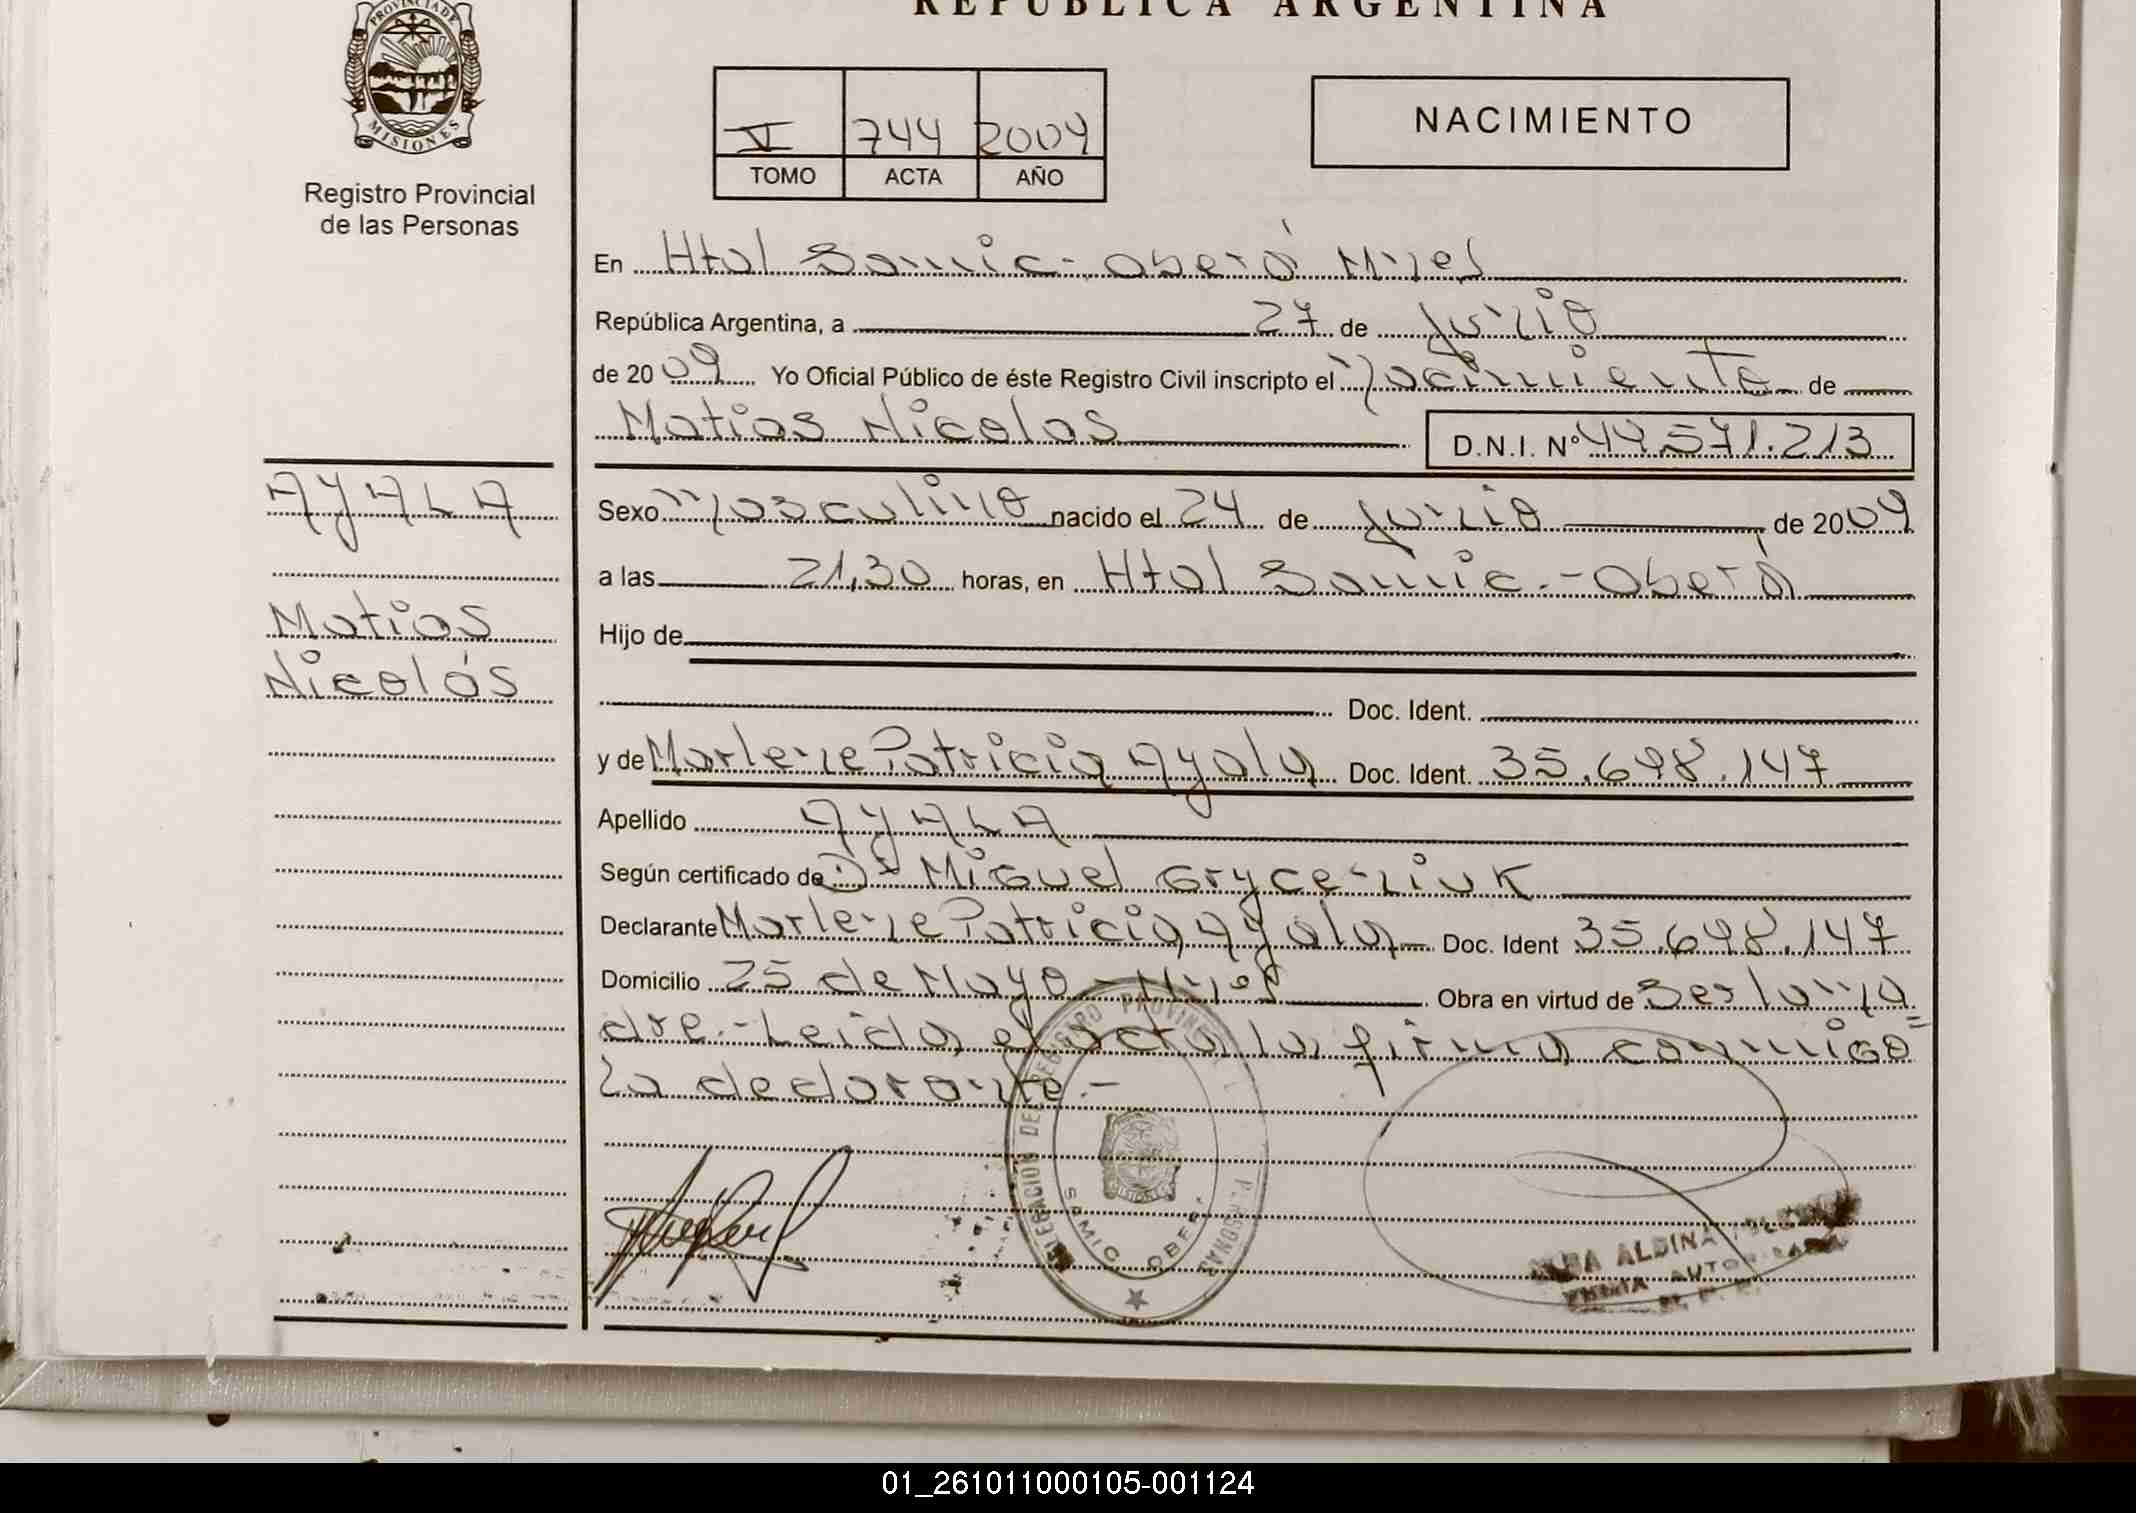 REPUBLICA ARGENTINA
PROVINCIA DE
MISIONES
Registro Provincial
de las Personas
V 744 2009
TOMO ACTA AÑO
NACIMIENTO
En Htal Samic - Oberá Mnes
República Argentina, a 27 de Junio
de 2009 Yo Oficial Público de éste Registro Civil inscripto el Nacimiento de
Matias Nicolas D.N.I. Nº 49.571.213
AYALA
Matias
Nicolás
Sexo Masculino nacido el 24 de Junio de 2009
a las 21,30 horas, en Htal Samic.- Oberá
Hijo de
Doc. Ident.
y de Marlene Patricia Ayala Doc. Ident. 35.698.147
Apellido AYALA
Según certificado de Dr Miguel Gryceniuk
Declarante Marlene Patricia Ayala Doc. Ident 35.698.147
Domicilio 25 de Mayo - Mnes Obra en virtud de Ser la ma
dre.- Leida el acta la firma conmigo
La declarante.-
DELEGACION DEL REGISTRO PROVINCIAL PERSONAS
SAMIC OBERA
ALDINA
01_261011000105-001124